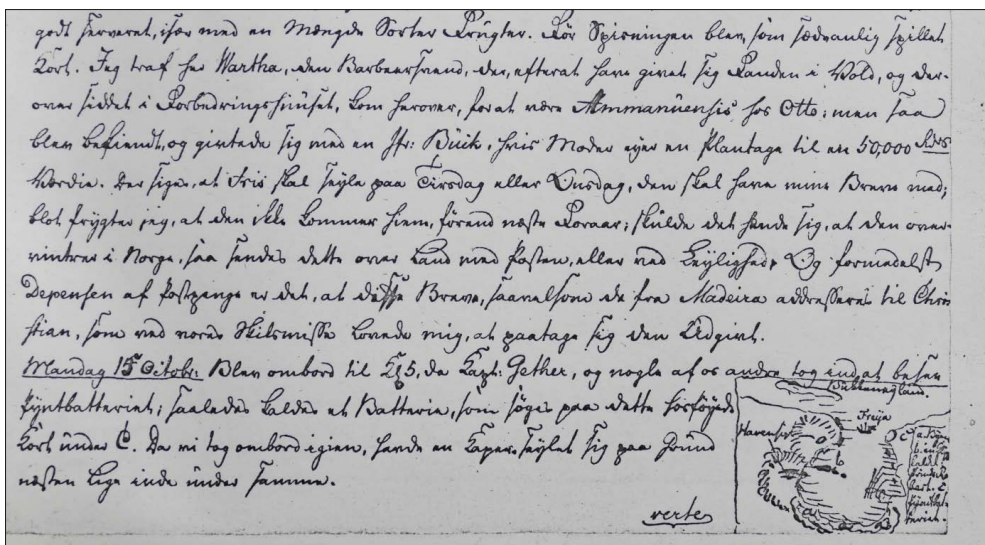 godt serveret, især med en Mængde Sorter Frugter. Før Spisningen blev, som sædvanlig spillet
Kort. Jeg traf her Wartha, den Barbeersvend, der, efterat have givet sig Fanden i Vold, og der-
over siddet i Forbedringshuuset, kom herover, for at være Ammanuensis hos Otto; men saa
blev bekiendt, og giftede sig med en Jfr: Büik, hvis Moder ejer en Plantage til en 50,000 Rdrs
Værdie. Der siges, at Iris skal seyle paa Tirsdag eller Onsdag, den skal have mine Breve med;
blot frygter jeg, at den ikke kommer hiem, förend næste Foraar; skulde det hende sig, at den over-
vintrer i Norge, saa sendes dette over Land med Posten, eller ved Leylighed. Og formedelst
Depensen af Postpenge er det, at disse Breve, saavelsom de fra Madeira addresseres til Chri
stian, som ved vores Skilsmisse lovede mig, at paatage sig den Udgivt.
Mandag 15 Octobr: Blev ombord til Kl 5, da Capt: Gether, og nogle af os andre tog ind at besee
Pyntbatteriet; saaledes kaldes et Batterie, som søges paa dette hosföyede
Kort under C. Da vi tog ombord igien, havde en Kaper seylet sig paa Grund
næsten lige inde under samme.
verte
Freija
Havensigt
C